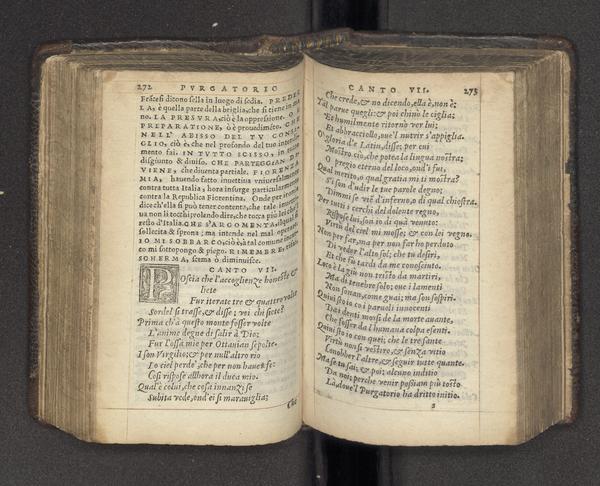 272 PVRGATORIO
Francesi dicono sella in luogo di sedia. PREDEL
LA, è quella parte della briglia, che si tiene in ma
no. LA PRESVRA, ciò è la oppressione. O E
PREPARATIONE, ò è prouedimẽto. CHE
NELL' ABISSO DEL TV CONSI
GLIO, ciò è, che nel profondo del tuo intendi
mento fai. IN TVTTO SCISSO, in tutto
disgiunto & diuiso. CHE PARTEGGIAN DI
VIENE, che diuenta partiale. FIORENZA
MIA, hauendo fatto inuettiua vniuersalmente
contra tutta Italia, hora insurge particularmente
contra la Republica Fiorentina. Onde per ironia
dice ch'ella si può tener contenta, che tale inuetti
ua non li tocchi: volendo dire, che tocca più lei che'l
resto d'Italia. CHE S'ARGOMENTA, il qual si
sollecita & sprona; ma intende nel mal operare.
IO MI SOBBARCO, ciò è, à tal comune incari
co mi sottopongo & piego. RIMEMBRE,
SCHERMA, scema ò diminuisce.
CANTO VII.
Poscia che l'accoglienze honeste &
liete
Fur iterate tre & quattro volte
Sordel si trasse, & disse; voi chi siete?
Prima ch'à questo monte fosser volte
L'anime degne di salir à Dio;
Fur l'ossa mie per Ottauian sepolte.
I son Virgilio; & per null'altro rio
Lo ciel perde', che per non hauer fè:
Così rispose allhora il duca mio.
Qual'è colui, che cosa innanzi se
Subita vede, ond'ei si marauiglia;
Che
CANTO VII. 273
Che crede, & no dicendo, ella è, non è;
Tal parue quegli: & poi chinò le ciglia;
Et humilmente ritornò ver lui;
Et abbracciollo, oue'l nutrir s'appiglia.
O gloria d'e Latin, disse; per cui
Mostrò ciò, che potea la lingua nostra;
O pregio eterno del loco, ond'i fui,
Qual merito, o qual gratia mi ti mostra?
S'i son d'udir le tue parole degno;
Dimmi se vie d'inferno, o di qual chiostra.
Per tutti i cerchi del dolente regno,
Rispose lui, son io di quà venuto:
Virtù del ciel mi mosse; & con lei vegno.
Non per far, ma per non far ho perduto
Di veder l'alto sol; che tu desiri,
Et che fù tardi da me conosciuto.
Loco è là giù non tristo da martiri,
Ma di tenebre solo; oue i lamenti
Non sonan, come guai; ma son sospiri.
Quiui sto io co i paruoli innocenti
Dai denti morsi de la morte auante,
Che fosser da l'humana colpa esenti.
Quiui sto io con quei; che le tre sante
Virtù non si vestiro, & senza vitio
Conobber l'altre, & seguir tutte quante.
Ma se tu sai; & poi; alcuno inditio
Da noi; perche venir possiam più tosto
Là, doue'l Purgatorio ha dritto initio.
S